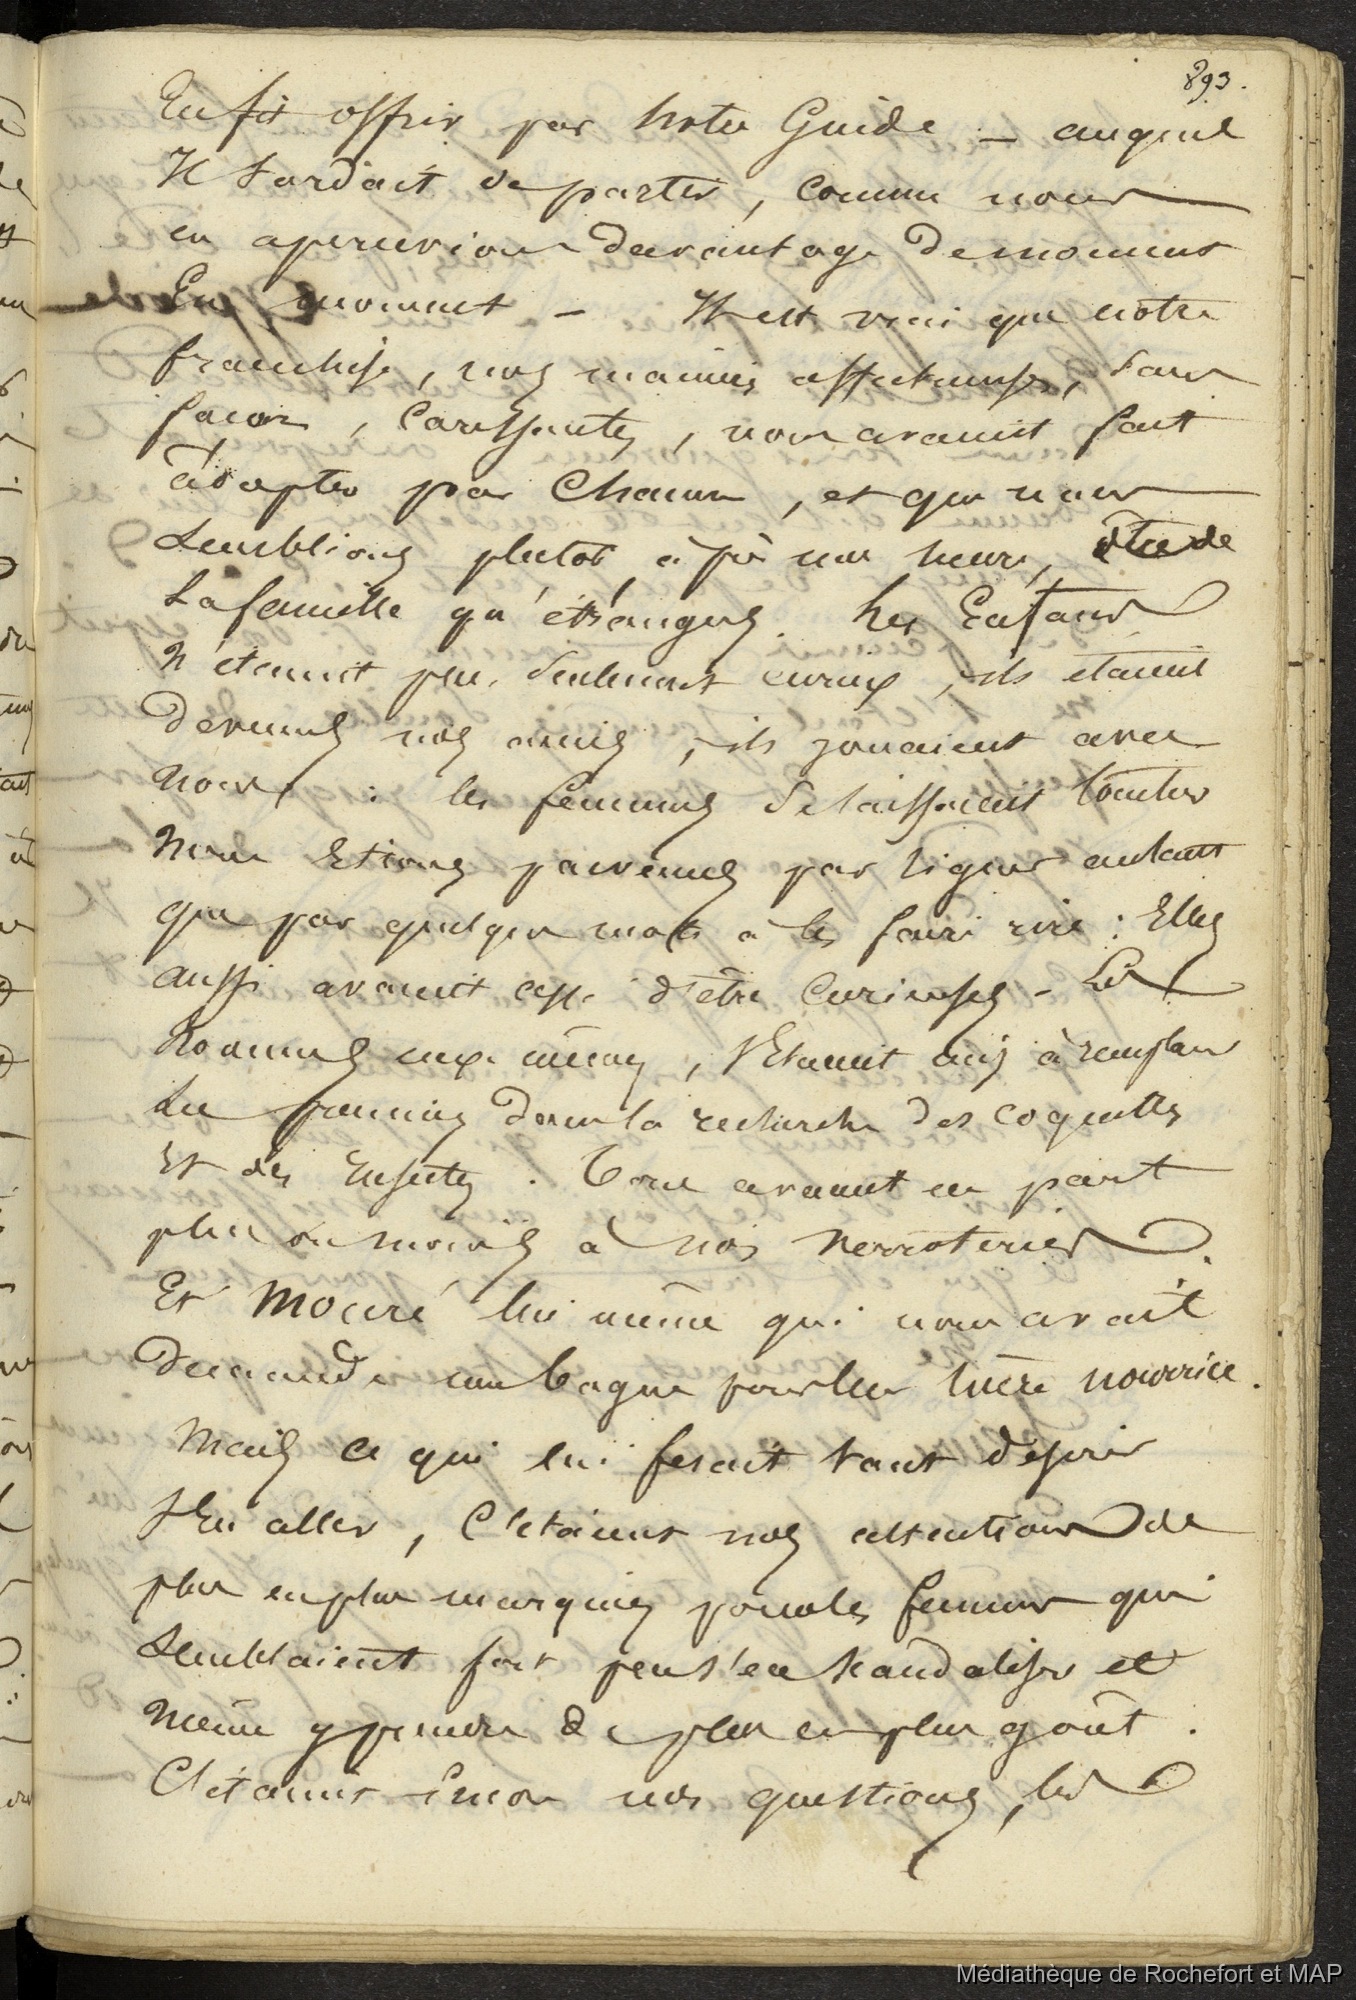 893.
En fit offrir par notre Guide – auquel
Il tardait de partir, comme nous
en apercevions davantage de moment
En moment – Il est vrai que notre
franchise, nos manieres affectueuses, sans
facon, Caressantes, nous avaient fait
adopter par Chacun, et que nous
semblions plutot, après une heure, être de
La famille qu'étrangers. Les Enfans
N'étaient pas seulement curieux, ils etaient
devenus nos amis, ils jouaient avec
nous : les femmes se laissaient tenter
nous Etions parvenus par signes autant
que par quelques mots à les faire rire : Elles
aussi avaient cessé d'être Curieuses – Les
hommes eux mêmes, s'Etaient mis à remplacer
Les femmes dans la recherche des coquilles
Et des Insectes. Tous avaient eu part
plus ou moins à nos verroteries.
Et Mociré lui même qui nous avait
demandé une bague pour leur mère nourrice.
Mais ce qui lui fesait tant désirer
s'En aller, C'etaient nos attentions de
plus en plus marquées pour les femmes qui
semblaient fort peu s'en scandaliser et
même y prendre de plus en plus goût.
C'étaient encore nos questions, les
Médiathèque de Rochefort et MAP